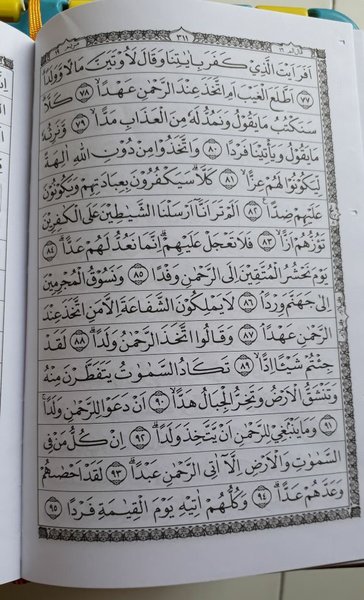 ٣١١ مريم ١٩
اَفَرَاَيْتَ الَّذِيْ كَفَرَ بِاٰيٰتِنَا وَقَالَ لَاُوْتَيَنَّ مَالًا وَّوَلَدًا
﴿٧٧﴾ اَطَّلَعَ الْغَيْبَ اَمِ اتَّخَذَ عِنْدَ الرَّحْمٰنِ عَهْدًا ﴿٧٨﴾ كَلَّا
سَنَكْتُبُ مَا يَقُوْلُ وَنَمُدُّ لَهٗ مِنَ الْعَذَابِ مَدًّا ﴿٧٩﴾ وَّنَرِثُهٗ
مَا يَقُوْلُ وَيَأْتِيْنَا فَرْدًا ﴿٨٠﴾ وَاتَّخَذُوْا مِنْ دُوْنِ اللّٰهِ اٰلِهَةً
لِّيَكُوْنُوْا لَهُمْ عِزًّا ﴿٨١﴾ كَلَّا سَيَكْفُرُوْنَ بِعِبَادَتِهِمْ وَيَكُوْنُوْنَ
عَلَيْهِمْ ضِدًّا ﴿٨٢﴾ اَلَمْ تَرَ اَنَّا اَرْسَلْنَا الشَّيٰطِيْنَ عَلَى الْكٰفِرِيْنَ
تَؤُزُّهُمْ اَزًّا ﴿٨٣﴾ فَلَا تَعْجَلْ عَلَيْهِمْ اِنَّمَا نَعُدُّ لَهُمْ عَدًّا ﴿٨٤﴾
يَوْمَ نَحْشُرُ الْمُتَّقِيْنَ اِلَى الرَّحْمٰنِ وَفْدًا ﴿٨٥﴾ وَّنَسُوْقُ الْمُجْرِمِيْنَ
اِلٰى جَهَنَّمَ وِرْدًا ﴿٨٦﴾ لَا يَمْلِكُوْنَ الشَّفَاعَةَ اِلَّا مَنِ اتَّخَذَ عِنْدَ
الرَّحْمٰنِ عَهْدًا ﴿٨٧﴾ وَقَالُوا اتَّخَذَ الرَّحْمٰنُ وَلَدًا ﴿٨٨﴾ لَقَدْ
جِئْتُمْ شَيْـًٔا اِدًّا ﴿٨٩﴾ تَكَادُ السَّمٰوٰتُ يَتَفَطَّرْنَ مِنْهُ
وَتَنْشَقُّ الْاَرْضُ وَتَخِرُّ الْجِبَالُ هَدًّا ﴿٩٠﴾ اَنْ دَعَوْا لِلرَّحْمٰنِ وَلَدًا
﴿٩١﴾ وَمَا يَنْۢبَغِيْ لِلرَّحْمٰنِ اَنْ يَّتَّخِذَ وَلَدًا ﴿٩٢﴾ اِنْ كُلُّ مَنْ فِى
السَّمٰوٰتِ وَالْاَرْضِ اِلَّآ اٰتِى الرَّحْمٰنِ عَبْدًا ﴿٩٣﴾ لَقَدْ اَحْصٰىهُمْ
وَعَدَّهُمْ عَدًّا ﴿٩٤﴾ وَكُلُّهُمْ اٰتِيْهِ يَوْمَ الْقِيٰمَةِ فَرْدًا ﴿٩٥﴾